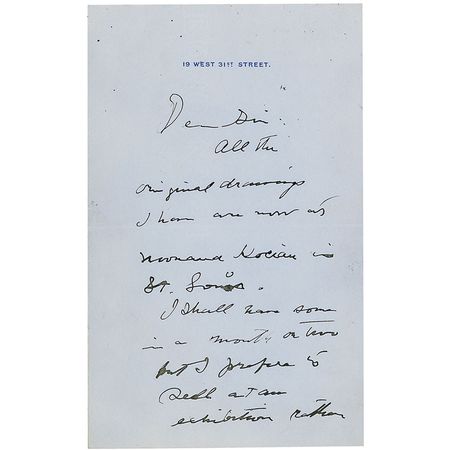 19 WEST 31ST STREET.
Dear Sir:
All the
original drawings
I have are now at
Noonan and Kocian in
St. Louis.
I shall have some
in a month or two
but I prefer to
sell at an
exhibition rather